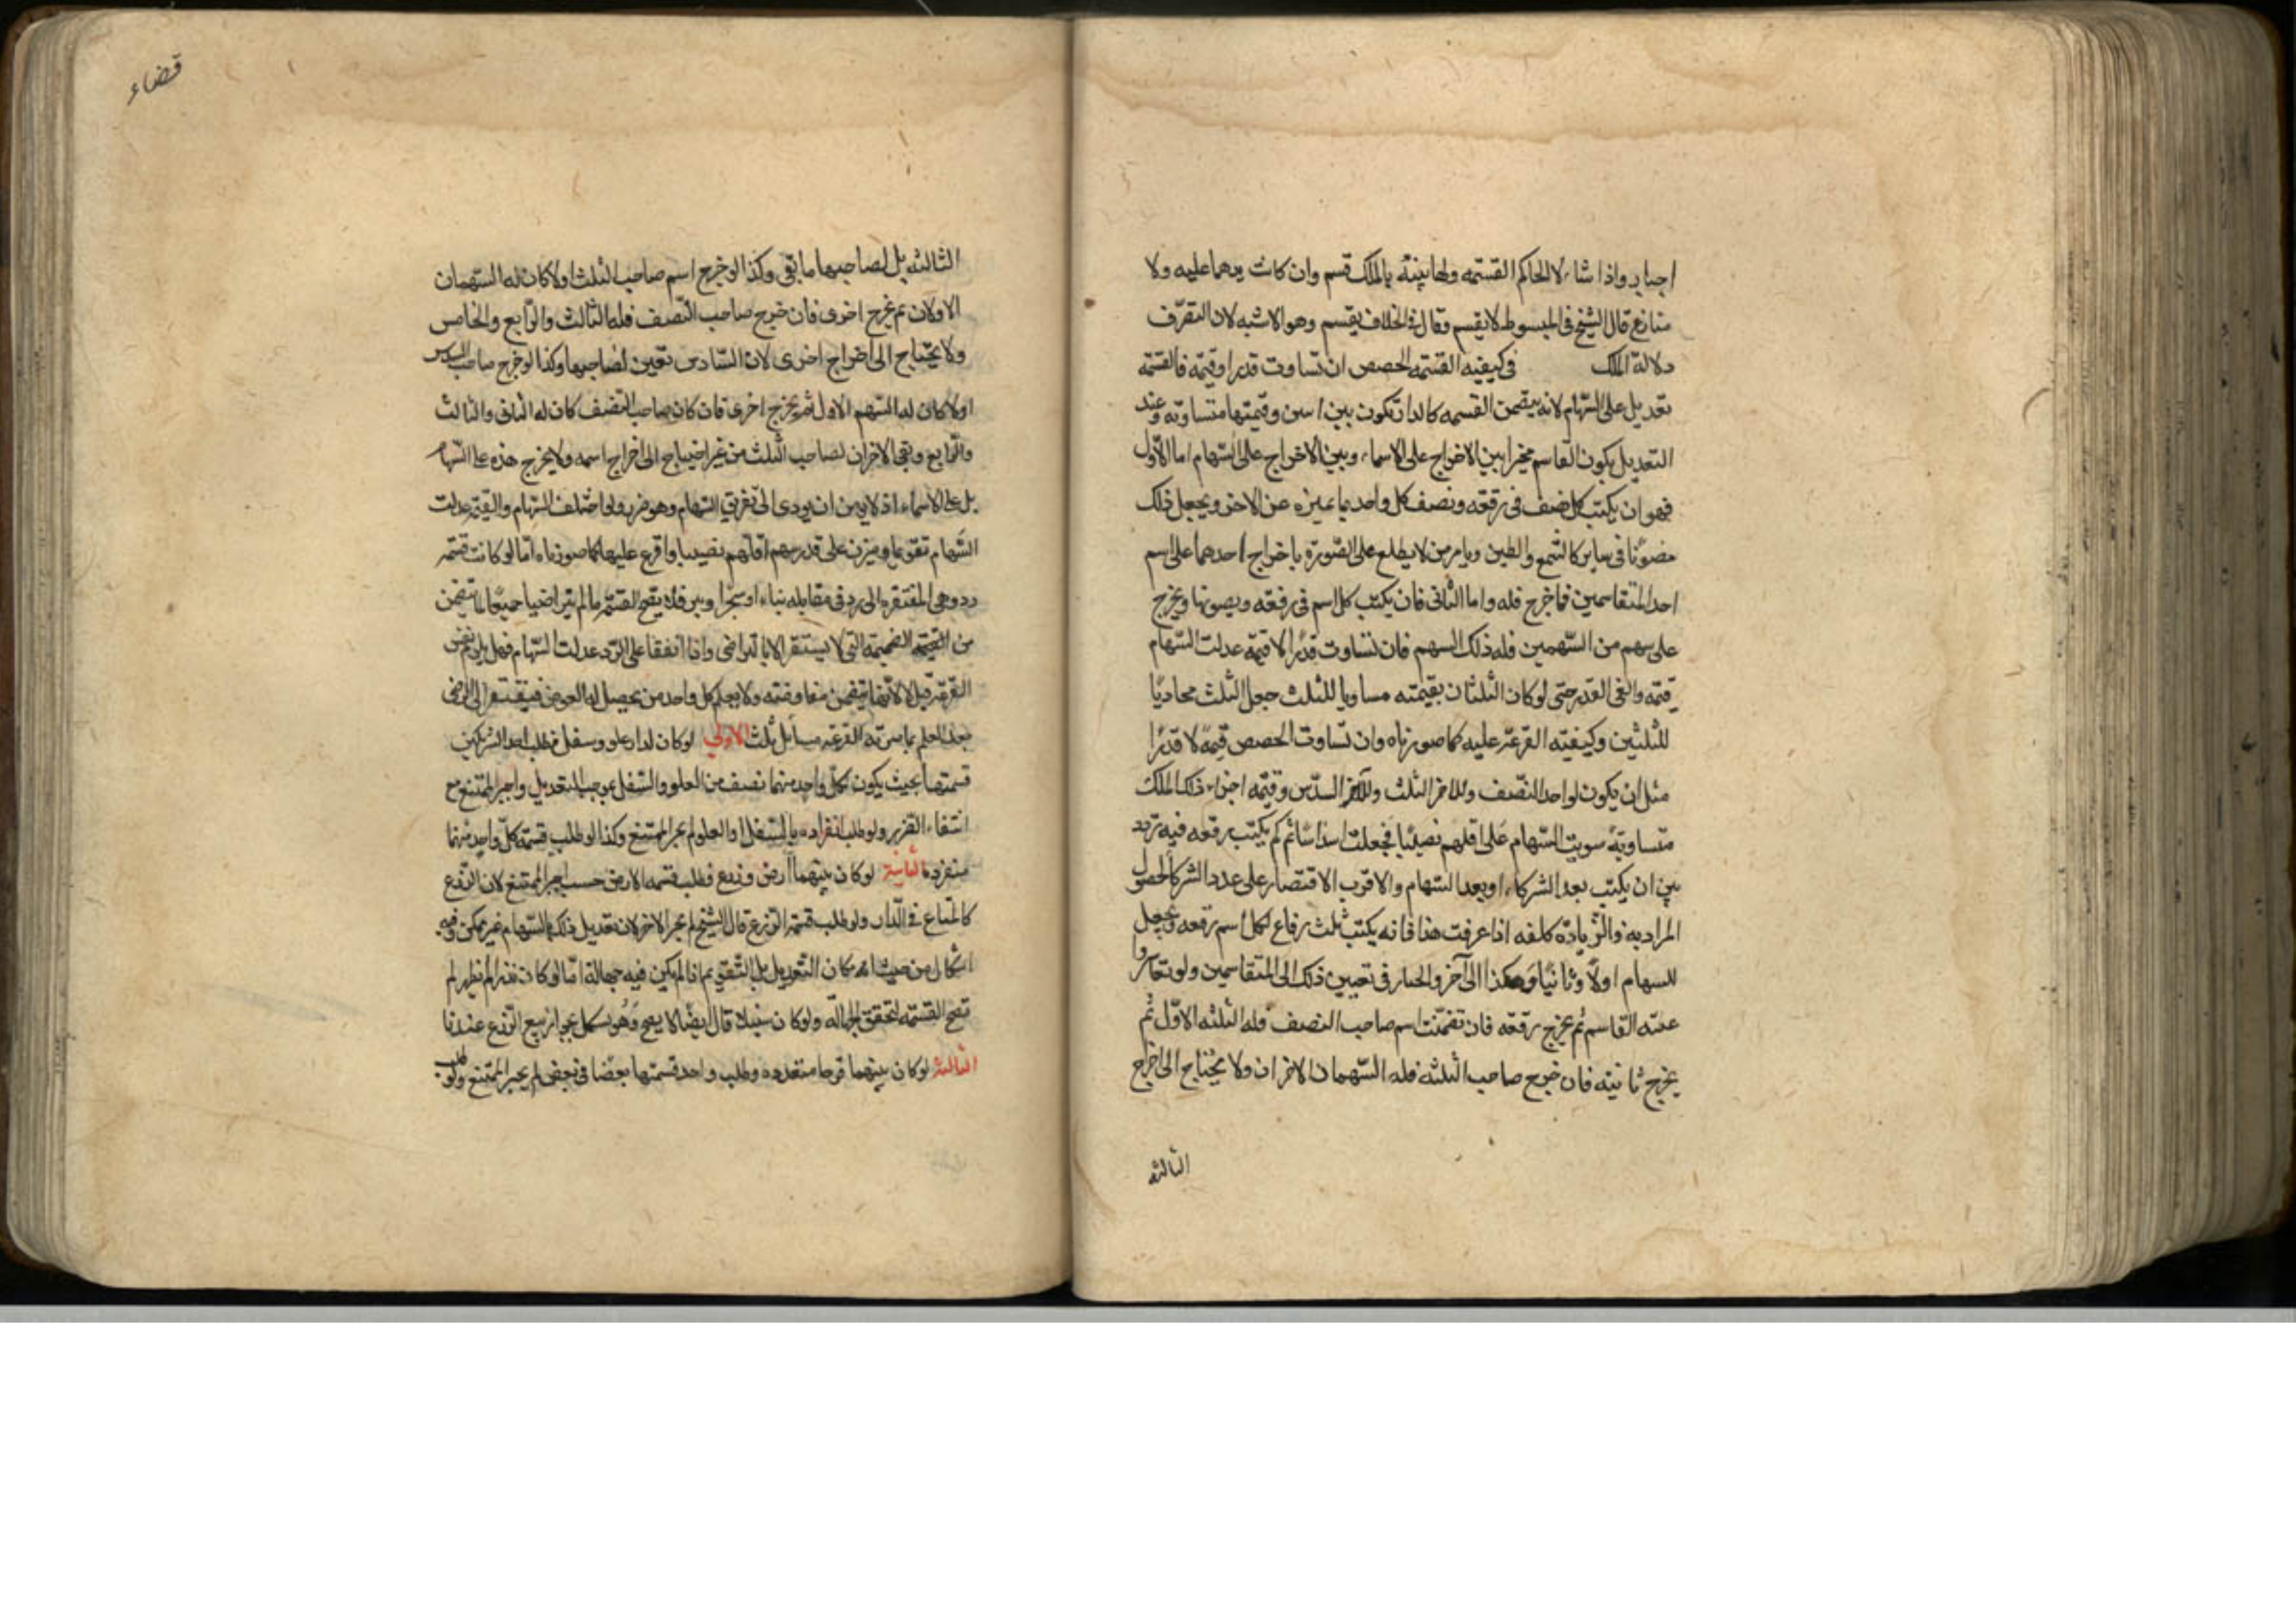 اجبار واذا سئالا الحاكم القسمة ولهما بينة بالملك قسم وان كانت يدهما عليه ولا
منازع قال الشيخ فى المبسوط لا يقسم وقال فى الخلاف يقسم وهو الاشبه لان التصرف
دلالة الملك فى كيفية القسمة الحصص ان تساوت قدرا وقيمة فالقسمة
بتعديل على السهام لانه يتضمن القسمة كالدار تكون بين اثنين وقيمتها متساوية وعند
التعديل يكون القاسم مخيرا بين الاخراج على الاسماء وبين الاخراج على السهام اما الاول
فهو ان يكتب كل نصف فى رقعة ويصف كل واحد بما يميزه عن الاخر ويجعل ذلك
مصونا فى ساتر كالشمع والطين ويامر من لا يطلع على الصورة باخراج احدهما على اسم
احد المتقاسمين فما خرج فله واما الثانى فان يكتب كل اسم فى رقعة ويصونها ويخرج
على سهم من السهمين فله ذلك السهم فان تساوت قدرا لا قيمة عدلت السهام
قيمة والغى القدر حتى لو كان الثلثان بقيمته مساويا للثلث جعل الثلث محاذيا
للثلثين وكيفية القرعة عليه كما صورناه وان تساوت الحصص قيمة لا قدرا
مثل ان يكون لواحد النصف وللاخر الثلث وللآخر السدس وقيمة اجزاء ذلك الملك
متساوية سويت السهام على اقلهم نصيبا فجعلت اسداسا ثم كم يكتب رقعة فيه تردد
بين ان يكتب بعد الشركاء او بعد السهام والاقرب الاقتصار على عدد الشركا لحصول
المراد به والزيادة كلفة اذا عرفت هذا فانه يكتب ثلث رقاع لكل اسم رقعة ويجعل
للسهام اولا وثانيا وهكذا الى آخر والخيار فى تعيين ذلك الى المتقاسمين ولو تعاسروا
عينه القاسم ثم يخرج رقعة فان تضمنت اسم صاحب النصف فله الثلثة الاول ثم
يخرج ثانية فان خرج صاحب الثلثة فله السهمان الاخران ولا يحتاج الى اخراج
الثالثة
قضاء
الثالثة بل لصاحبها ما بقى وكذا لو خرج اسم صاحب الثلث اولا كان له السهمان
الاولان ثم يخرج اخرى فان خرج صاحب النصف فله الثالث والرابع والخامس
ولا يحتاج الى اخراج اخرى لان السادس تعين لصاحبها وكذا لو خرج صاحب السدس
اولا كان له السهم الاول ثم يخرج اخرى فان كان صاحب النصف كان له الثانى والثالث
والرابع وبقى الاخران لصاحب الثلث من غير احتياج الى اخراج اسمه ولا يخرج هذه على السهام
بل على الاسماء اذ لا يومن ان يودى الى تفريق السهام وهو ضرر ولو اختلف السهام والقيمة عدلت
السهام تقويما وميزت على قدر سهم اقلهم نصيبا واقرع عليها كما صورناه اما لو كانت قسمة
رد وهى المفتقرة الى رد فى مقابلة بناء او شجر او بئر فلا يصح القسمة ما لم يتراضيا جميعا لما يتضمن
من الضميمة التى لا يستقر الا بالتراضى واذا اتفقا على الرد وعدلت السهام فهل يلزم بنفس
القرعة قيل لا لانها يتضمن معاوضة ولا يعلم كل واحد من يحصل له العوض فيفتقر الى الرضى
بعد العلم بما ميزته القرعة مسائل ثلث الاولى لو كان لدار علو وسفل فطلب احد الشريكين
قسمتها بحيث يكون لكل واحد منهما نصف من العلو والسفل بموجب التعديل واجبر الممتنع مع
انتفاء الضرر ولو طلب انفراده بالسفل او العلو لم يجبر الممتنع وكذا لو طلب قسمة كل واحد منهما
منفردة الثانية لو كان بينهما ارض وزرع فطلب قسمة الارض حسب اجبر الممتنع لان الزرع
كالمتاع فى الدار ولو طلب قسمة الزرع قال الشيخ لم يجبر الاخر لان تعديل ذلك بالسهام غير ممكن وفيه
اشكال من حيث امكان التعديل بالتقويم اذا لم يكن فيه جهالة اما لو كان بذرا لم يظهر لم
تصح القسمة لتحقق الجهالة ولو كان سنبلا قال ايضا لا يصح وهو مشكل بجواز بيع الزرع عندنا
الثالثة لو كان بينهما قرحا متعددة وطلب واحد قسمتها بعضا فى بعض لم يجبر الممتنع ولو طلب